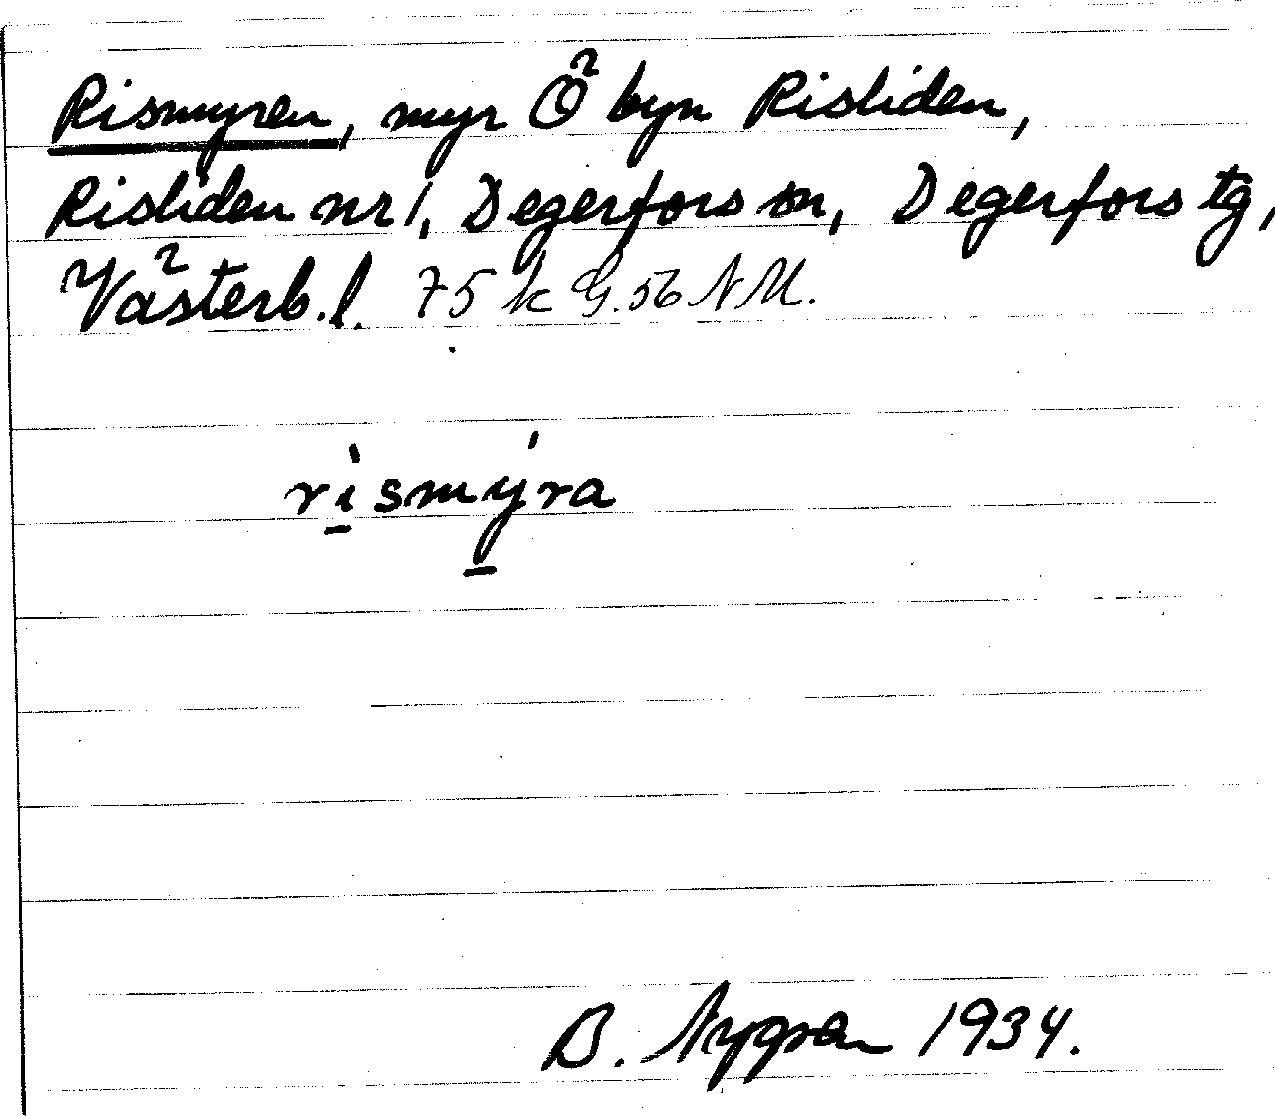 Rismyren, myr Ö byn Risliden,
Risliden nr 1, Degerfors sn, Degerfors tg,
Västerb.l. 75 k G.56 N M.
rismýra
B. Nygren 1934.